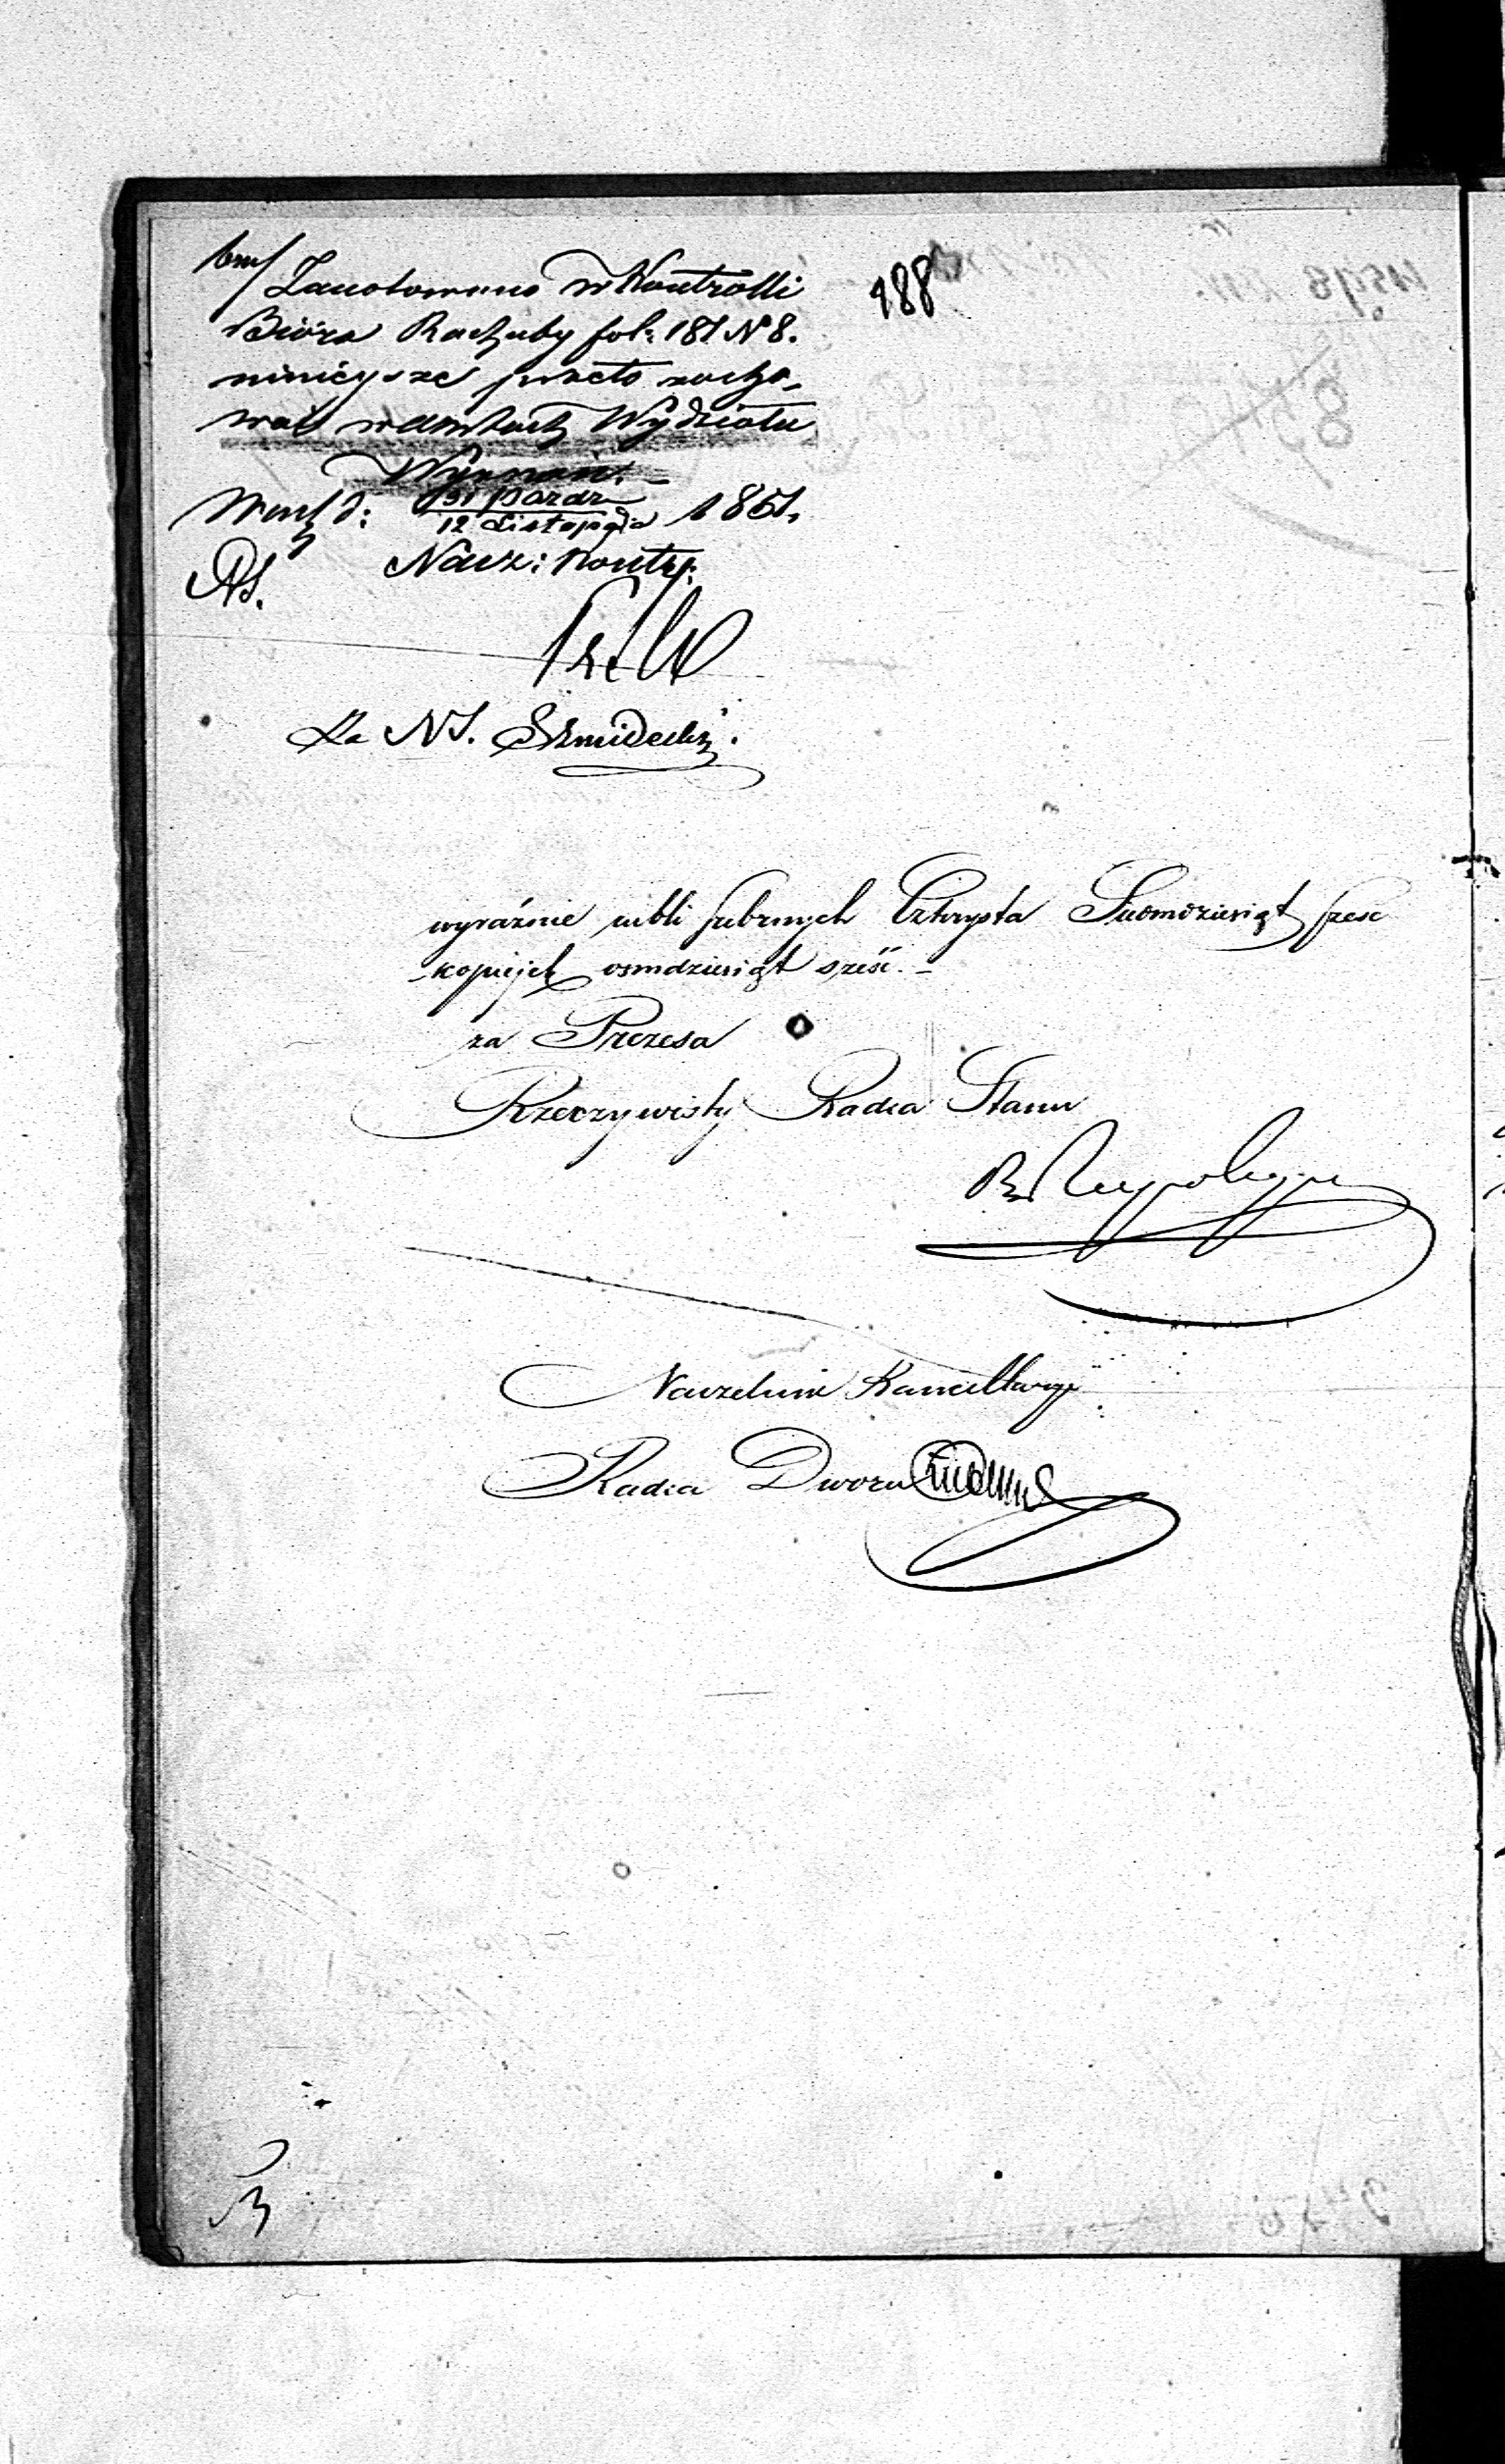 Zanotowano w Kontrolli
188
Bióra Rachuby fol: 181 N° 8.
niniejsze przeto zacho-
wać w aktach Wydziału
Wyznań. -
Warsz d: 31 Pazdz / 12 Listopada 1851.
Nacz: Kontr:
NS.
Za NS.
wyraźnie rubli srebrnych Czterysta Siedmdziesiąt sześć
kopiejek osmdziesiąt sześć. -
za Prezesa
Rzeczywisty Radca Stanu
Naczelnik Kancellaryi
Radca Dworu